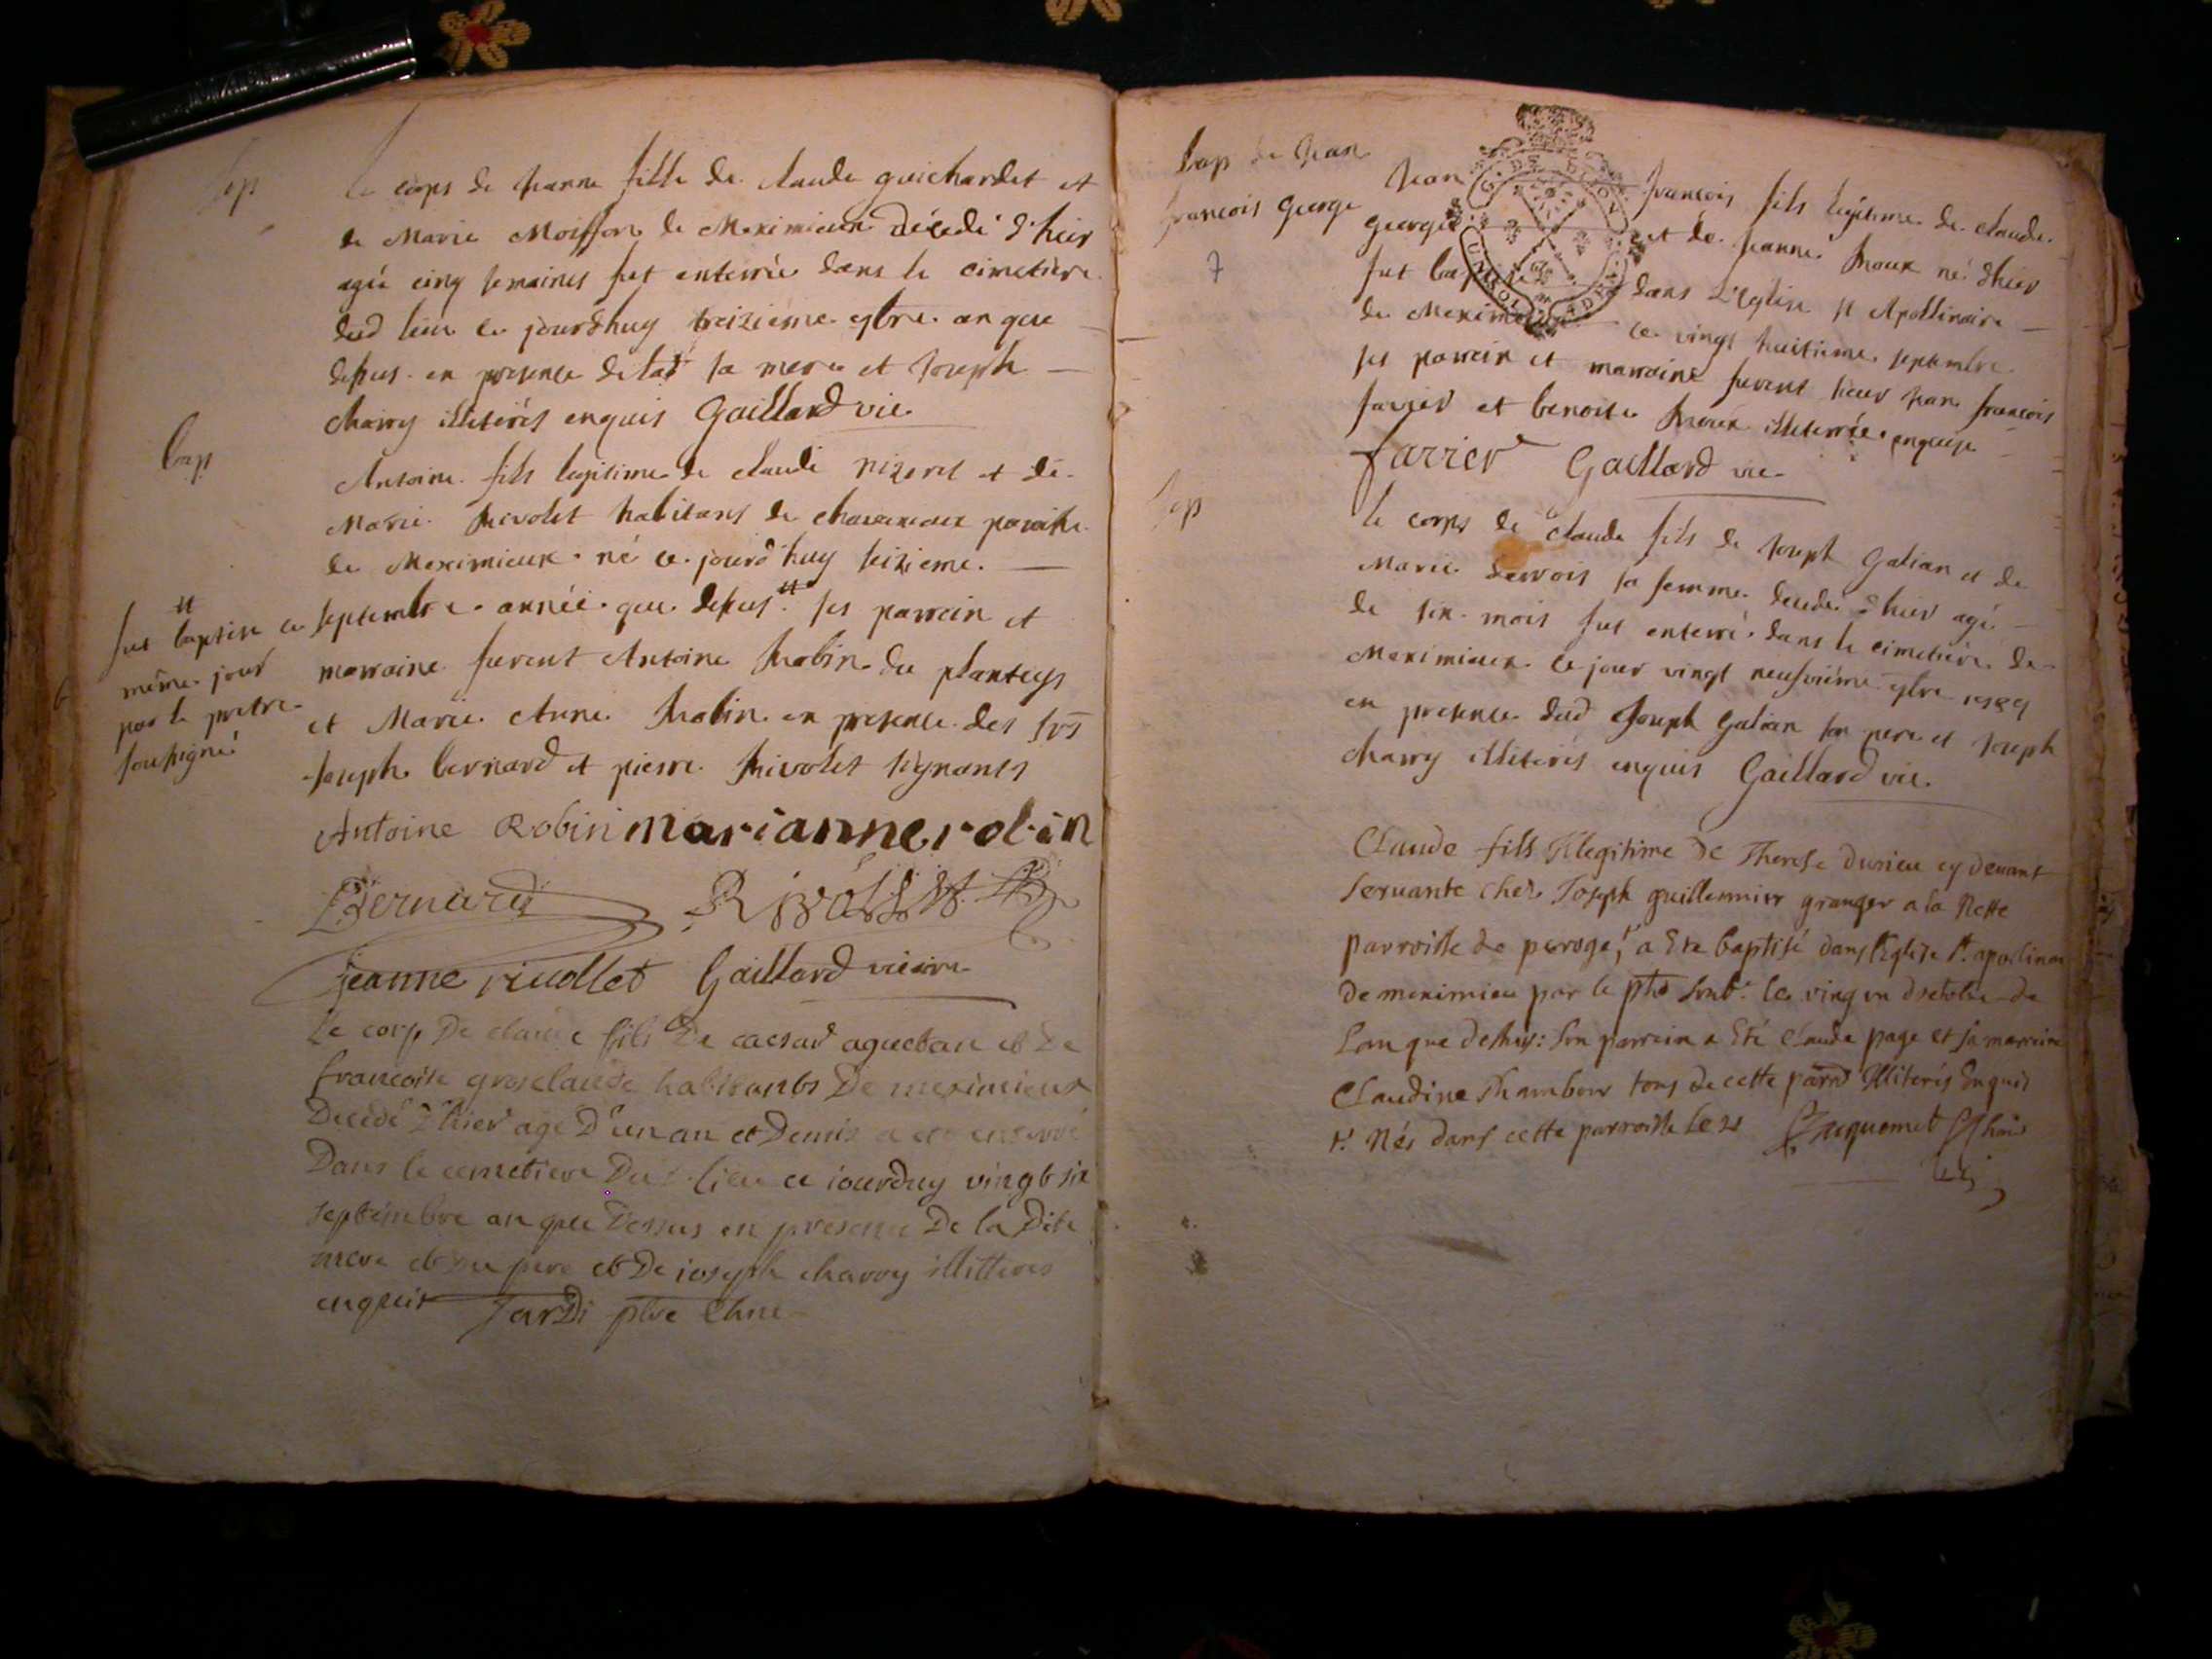 Sep
Le corps de jeanne fille de claude guichardet et
de Marie Moisson de Meximieux décedé d'hier
agée cinq semaines fut enterrée dans le cimetière
dud lieu ce jourdhuy treizième 7bre an que
dessus en presence de lad sa mere et Joseph
charry illiterés enquis Gaillard vic.
bap
Antoine fils legitime de claude nizeret et de
Marie Rivolet habitans de paroisse
de Meximieux né ce jourd'huy seizieme
septembre année que dessus # ses parrein et
# fut baptisé ce
même jour
par le pretre
soussigné
marraine furent Antoine Robin du planteys
et Marie Anne Robin en presence des srs
Joseph bernard et pierre Rivolet signants
Antoine Robin marianne robin
Bernard Rivollet
jeanne riuollet Gaillard vicaire
Le corp De claude fils De caesar aguetan et De
francoise groselaude habitants De meximieux
Decédé D'hier agé D'un an et Demis a eté enterré
Dans le cemetiere Du lieu ce iourduy vingt six
septembre an que Dessus en presence De la Dite
mere et du pere et De ioseph charry illitteres
enquis Jardi ptre Chne
bap de Jean
françois George
7
Jean françois fils legitime de claude
George et de jeanne Roux né d'hier
fut baptisé dans L'eglise st Apollinaire
de Meximieux ce vingt huitieme septembre
ses parrein et marraine furent sieur jean françois
farrier et benoite Roux illiterée enquise
farrier Gaillard vic.
Sep
le corps de claude fils de Joseph Galian et de
Marie sa femme decedé d'hier agé
de six mois fut enterré dans le cimetière de
Meximieux ce jour vingt neufvième 7bre
en presence dud Joseph Galian son pere et Joseph
charry illiterés enquis Gaillard vic.
Claude fils Illegitime de Therese durieu cy devant
servante chés Joseph guillermier granger a la
parroisse de peroge, a Eté baptisé dans l'Eglise st. apolinar
de meximieu par le ptre le ving un doctobre de
Lan que dessus: son parrein a Eté Claude page et sa marreine
Claudine Chambour tous de cette parroisse Illiterés Enquis
Nés dans cette parroisse le 21 Jacquemet